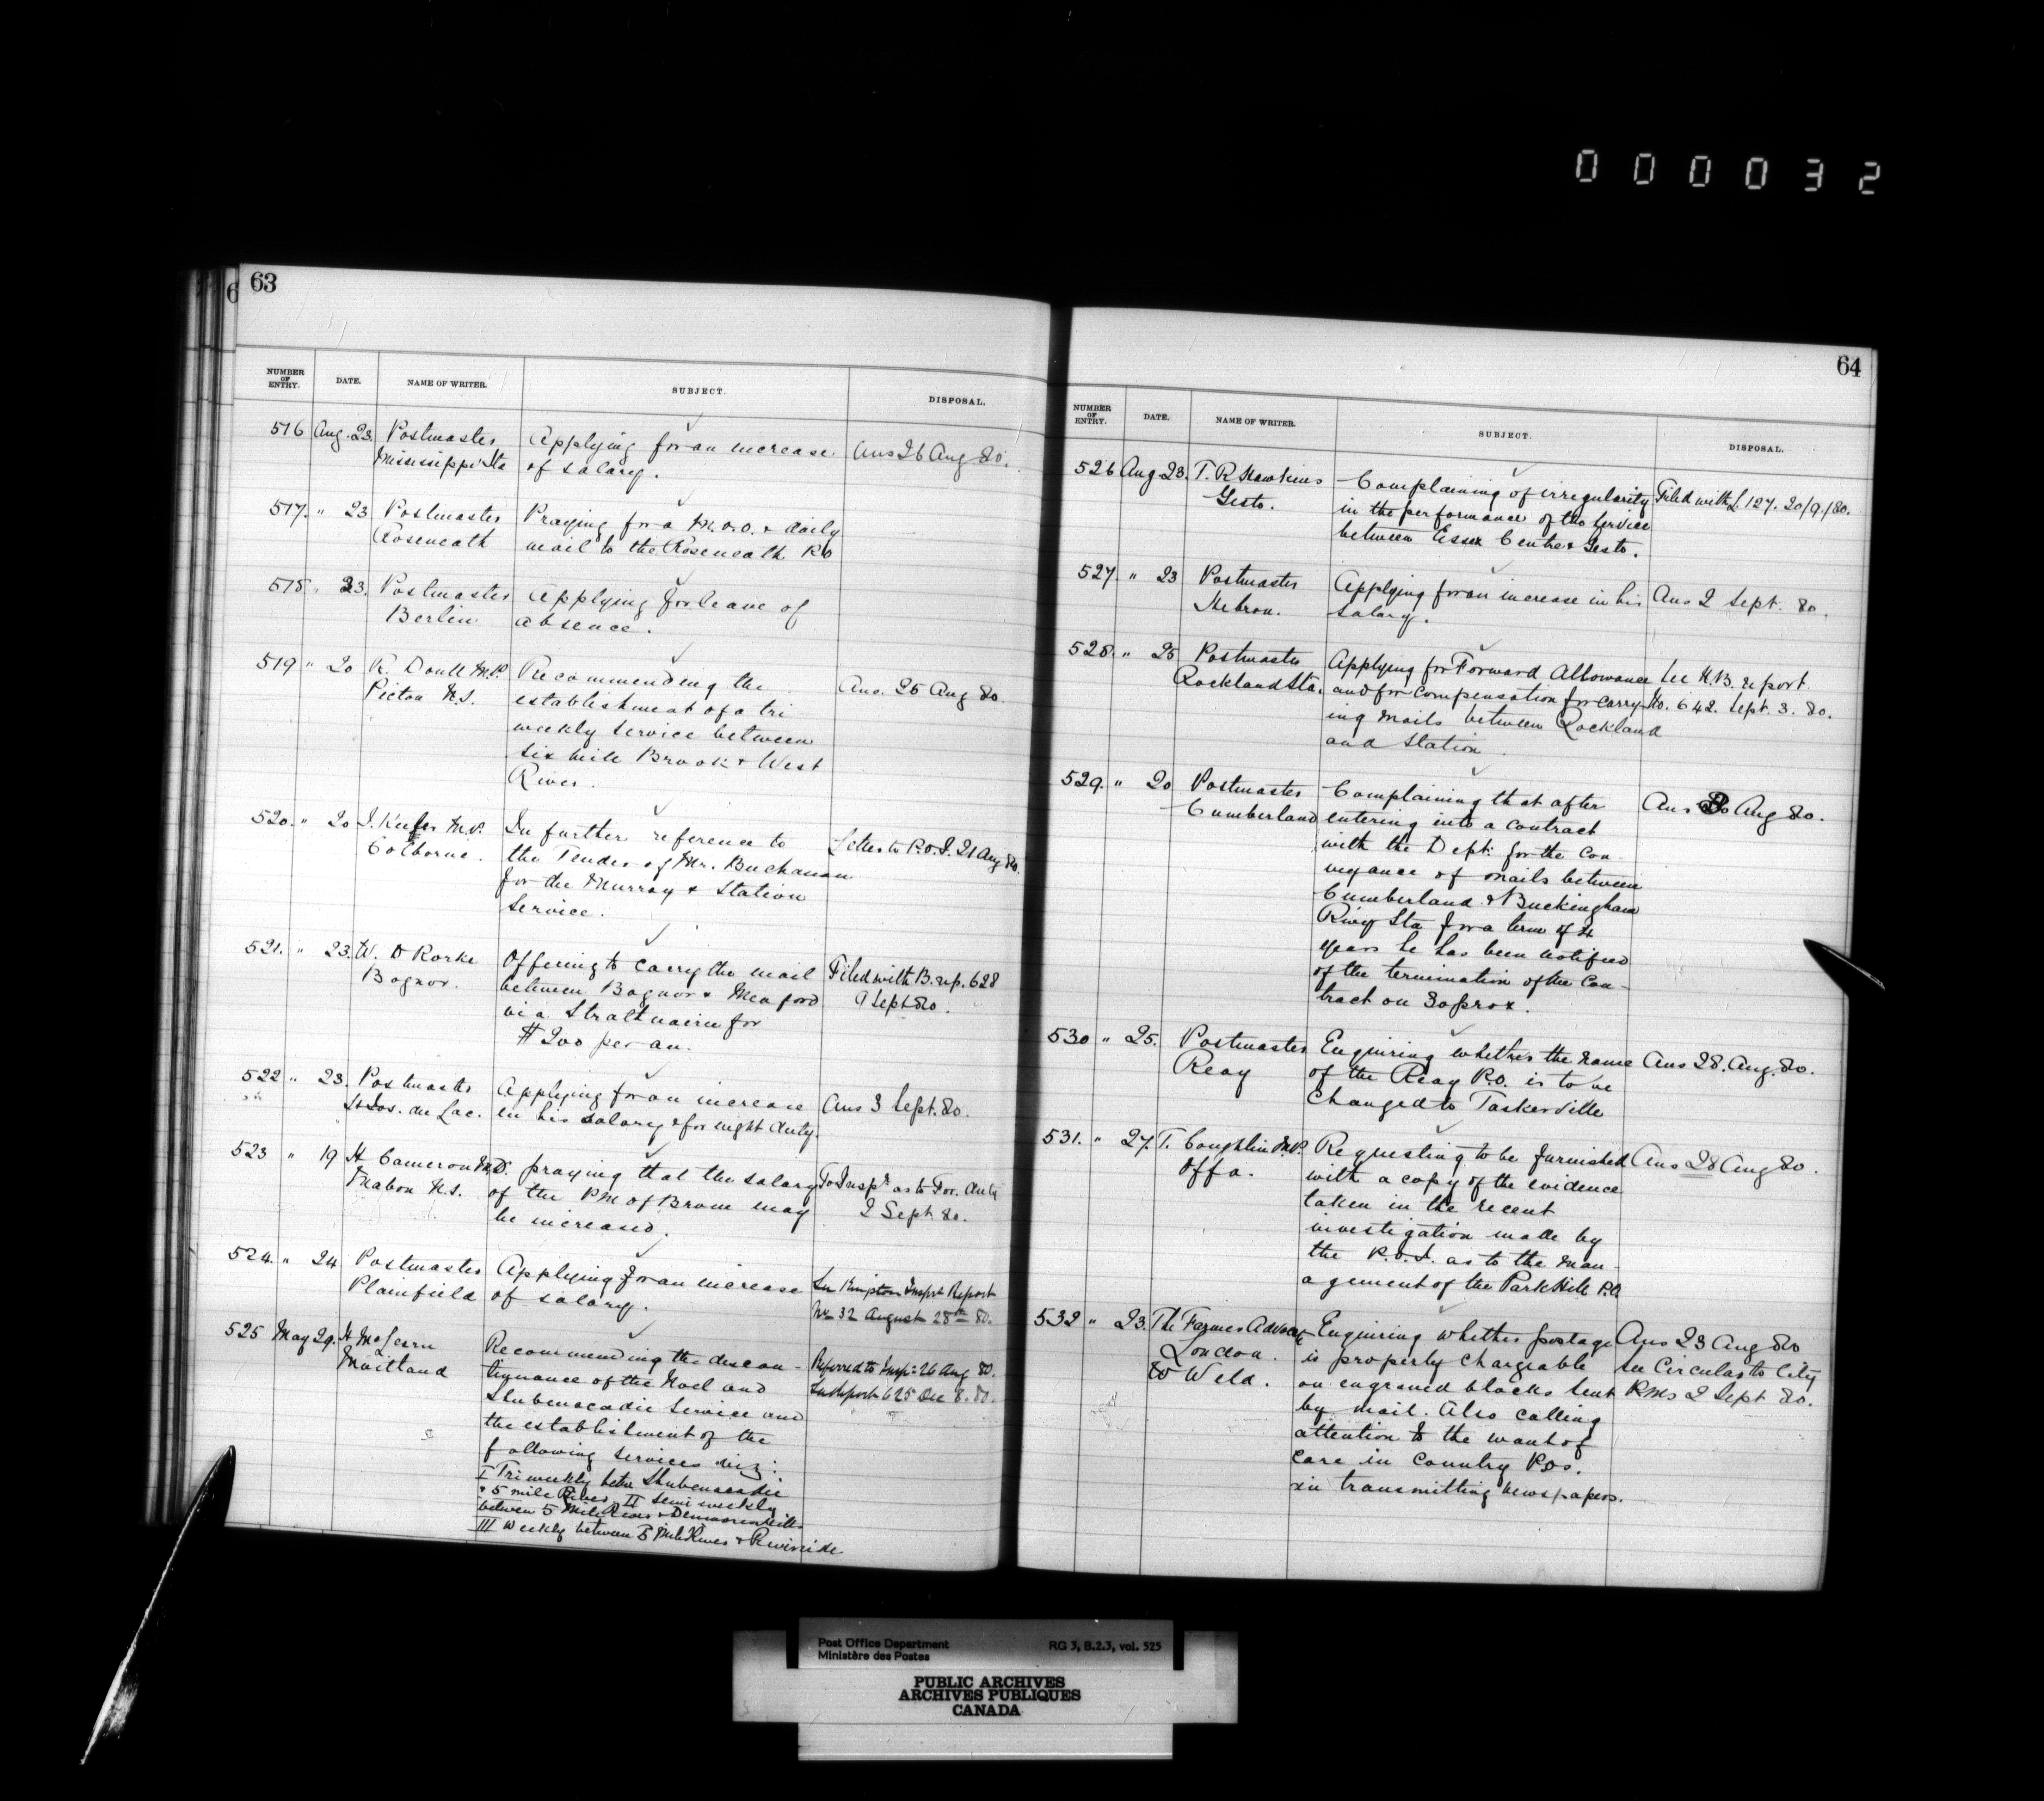 000032
63
NUMBER OF ENTRY. DATE. NAME OF WRITER. SUBJECT. DISPOSAL.
516 Aug. 23. Postmaster Applying for an increase Ans 26 Aug 80.
Mississippi Sta of salary.
517. " 23 Postmaster Praying for a M.O.O. & daily
Roseneath mail to the Roseneath P.O
518. " 23. Postmaster Applying for leave of
Berlin absence.
519 " 20 R. Doull M.P. Recommending the Ans. 25 Aug 80.
Pictou N.S. establishment of a tri
weekly service between
six mile Brook & West
River.
520. " 20 J. Keeler M.P. In further reference to Letter to P.O.I. 21 Aug 80.
Colborne. the Tender of Mr. Buchanan
for the Murray & Station
Service.
521. " 23. W. D Rorke Offering to carry the mail Filed with B. rep. 628
Bognor. between Bognor & Meaford 9 Sept 80.
via Strathnairn for
$200 per an.
522 " 23. Postmaster Applying for an increase Ans 3 Sept. 80.
St Jos. du Lac. in his salary & for night duty.
523 " 19 H Cameron M.D. praying that the salary To Inspr as to For. duty
Mabou N.S. of the PM of Brom may 2 Sept 80.
be increased.
524. " 24 Postmaster Applying for an increase See Kingston Inspr Report
Plainfield of salary. No 32 August 28th 80.
525 May 29. H McLearn Recommending the discon- Referred to Insp: 26 Aug 80.
Maitland tinuance of the Noel and See Report 625 Dec 8. 80.
Shubenacadie Service and
the establishment of the
following services viz:
I Triweekly betw Shubenacadie
& 5 mile River II Semi weekly
between 5 Mile River & Densmores Mills
III Weekly between 5 Mile River & Riverside
64
NUMBER OF ENTRY. DATE. NAME OF WRITER. SUBJECT. DISPOSAL.
526 Aug 23. T. R Hawkins Complaining of irregularity Filed with L. 127. 20/9/80.
Gesto. in the performance of the Service
between Essex Centre & Gesto.
527. " 23 Postmaster Applying for an increase in his Ans 2 Sept. 80.
Hebron. salary.
528. " 25 Postmaster Applying for Forward Allowance See N.B. report.
Rockland Sta. and for compensation for carry- No. 642. Sept. 3. 80.
ing mails between Rockland
and Station.
529. " 20 Postmaster Complaining that after Ans 30 Aug 80.
Cumberland entering into a contract
with the Dept: for the con-
veyance of mails between
Cumberland & Buckingham
Rivr Sta for a term of 4
years he has been notified
of the termination of the Con-
tract on 30 prox.
530 " 25. Postmaster Enquiring whether the name Ans 28. Aug. 80.
Reay of the Reay P.O. is to be
changed to Taskerville
531. " 27. T. Coughlin M.P. Requesting to be furnished Ans 28 Aug 80.
Offa. with a copy of the evidence
taken in the recent
investigation made by
the P.O.I. as to the Man-
agement of the Park Hill P.O
532 " 23. The Farmer Advocate Enquiring whether postage Ans 23 Aug 80
London. is properly chargeable see Circular to City
W Weld. on engraved blocks sent P.Ms 2 Sept 80.
by mail. Also calling
attention to the want of
care in country P.Os.
in transmitting newspapers.
Post Office Department RG 3, B.2.3, vol. 525
Ministère des Postes
PUBLIC ARCHIVES
ARCHIVES PUBLIQUES
CANADA